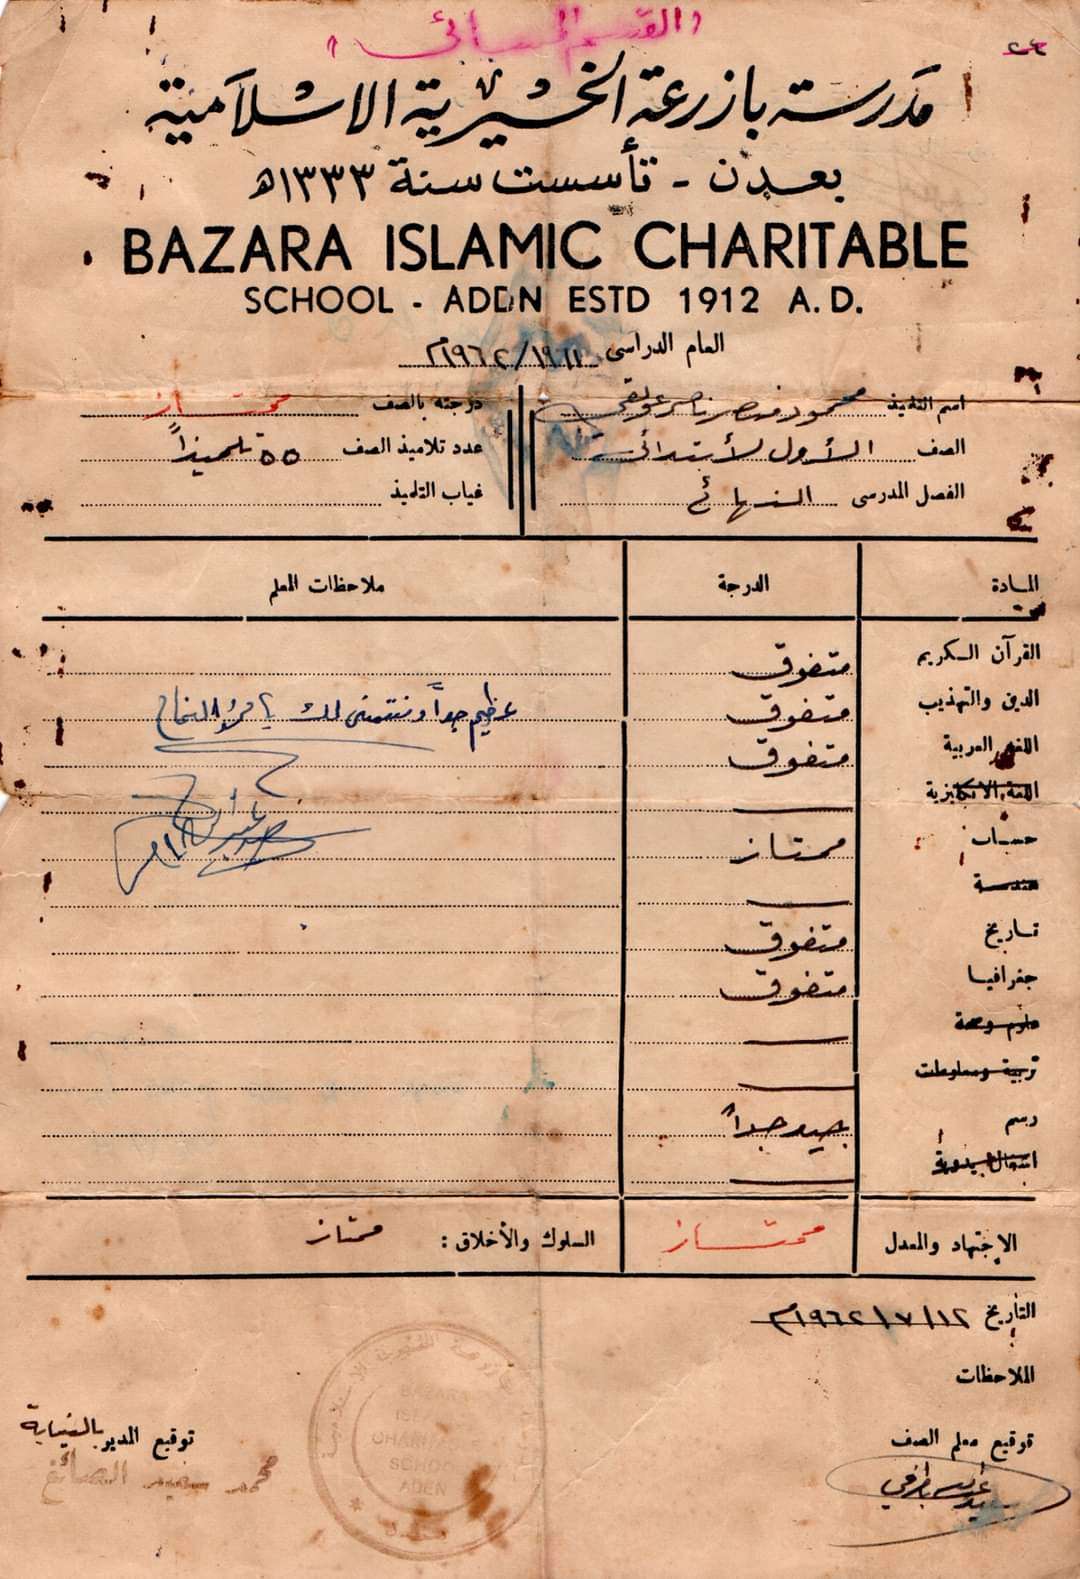 (القسم المسائي)
٢٤
مدرسة بازرعة الخيرية الاسلامية
بعدن - تأسست سنة ١٣٣٣ھ
BAZARA ISLAMIC CHARITABLE
SCHOOL - ADEN ESTD 1912 A.D.
العام الدراسى ١٩٦١/١٩٦٢م
اسم التلميذ محمود ناصر عولقي درجته بالصف ممتاز
الصف الأول الأبتدائي عدد تلاميذ الصف ٥٥ تلميذاً
الفصل المدرسى النهائي غياب التلميذ
المادة الدرجة ملاحظات المعلم
القرآن الكريم متفوق
الدين والتهذيب متفوق عظيم جداً ونتمنى لك النجاح
اللغة العربية متفوق
اللغة الانكليزية —
حساب ممتاز
هندسة —
تاريخ متفوق
جغرافيا متفوق
علوم وصحة —
تربية ومعلومات —
رسم جيد جداً
اشغال يدوية —
الاجتهاد والمعدل ممتاز السلوك والأخلاق : ممتاز
التاريخ ١٢/٧/١٩٦٢م
الملاحظات
توقيع معلم الصف توقيع المدير بالنيابة
محمد سعيد الصائغ
BAZARA
ISLAMIC
CHARITABLE
SCHOOL
ADEN